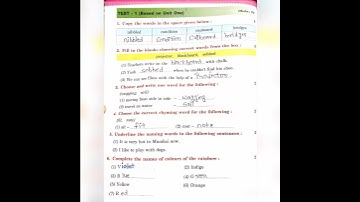 TEST - 1 (Based on Unit One)
1. Copy the words in the space given below :
nibbled condition cupboard bridges
nibbled condition Cupboard bridges
2. Fill in the blanks choosing correct words from the box :
projector, blackboard, sobbed
(1) Teachers write on the blackboard with chalk.
(2) Yash sobbed when he couldn't find his shoes.
(3) We can see films with the help of a Projectore
3. Choose and write one word for the following :
(wagging, sail)
(1) moving from side to side - wagging
(2) travel on water - sail
4. Choose the correct rhyming word for the following :
(1) sit - fit (2) coat - note
5. Underline the naming words in the following sentences :
(1) It is very hot in Mumbai now.
(2) I like to play with dogs.
6. Complete the names of colours of the rainbow :
(1) Violet (2) Indigo
(3) B lue (4) G reen
(5) Yellow (6) Orange
(7) R ed